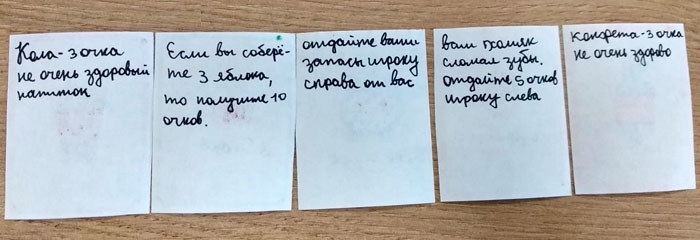 Кола - 3 очка
не очень здоровый
напиток
Если вы соберё-
те 3 яблока,
то получите 10
очков.
отдайте ваши
запасы игроку
справа от вас
ваш хомяк
сломал зубы.
отдайте 5 очков
игроку слева
конфета - 3 очка
не очень здорово